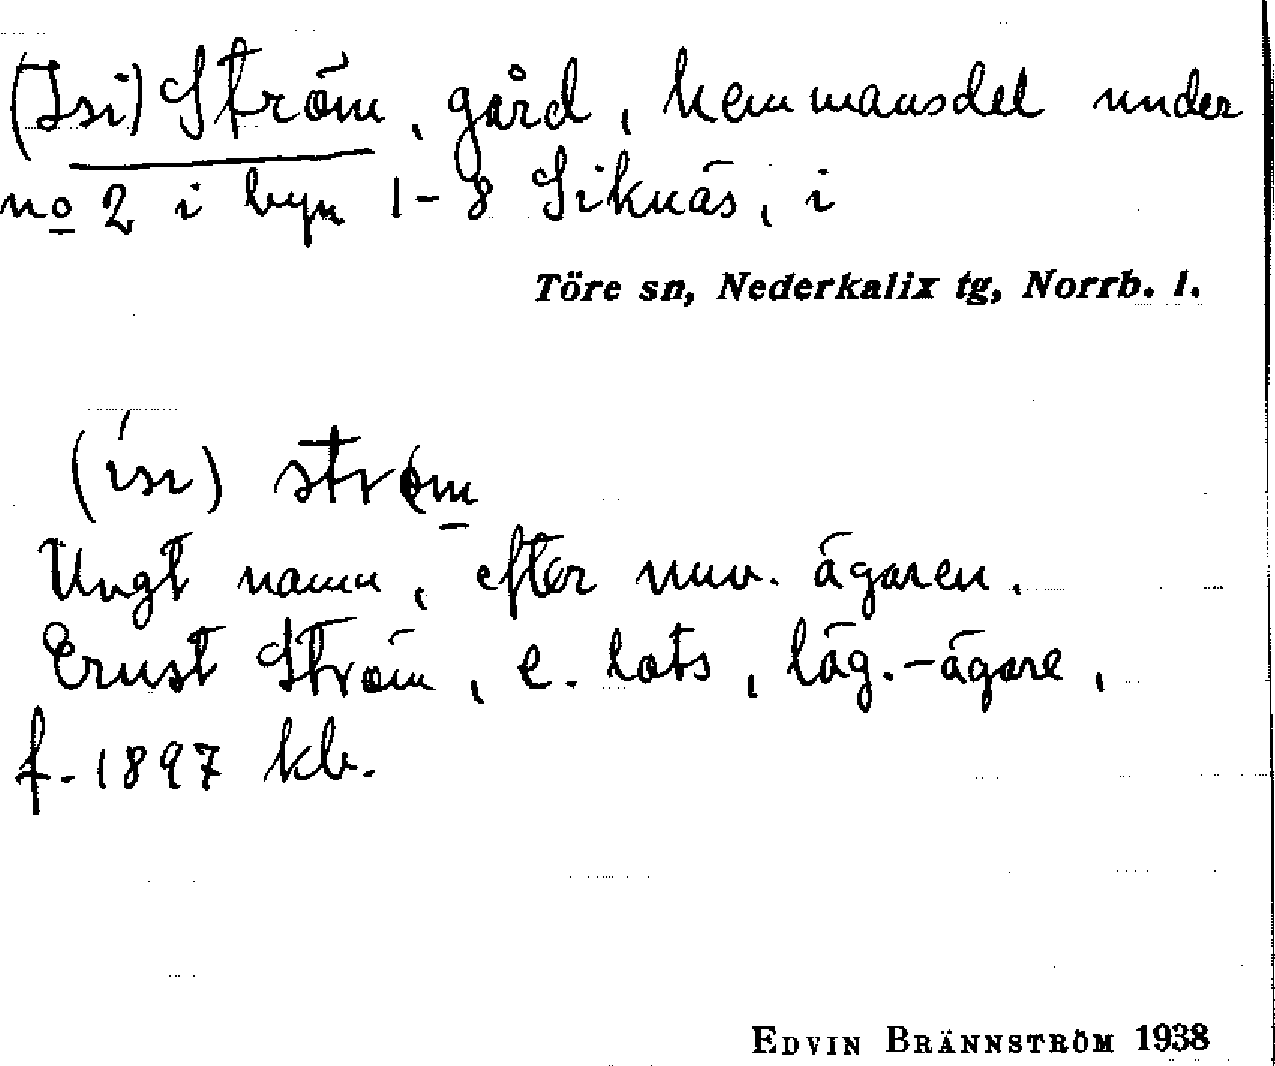 (Isi) Ström, gård, hemmansdel under
no 2 i byn 1-8 Siknäs, i
Töre sn, Nederkalix tg, Norrb. l.
(ísı) strøm
Ungt namn, efter nuv. ägaren.
Ernst Ström, e. lots, läg.-ägare,
f. 1897 kb.
EDVIN BRÄNNSTRÖM 1938